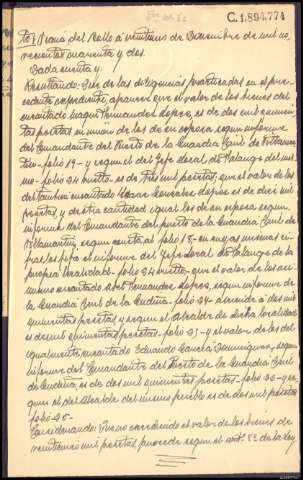 C.1.894.774
a veintiuno de Diciembre de mil no-
vecientos cuarenta y dos.
Dada cuenta y
Resultando: Que de las diligencias practicadas en el pre-
cedente expediente, aparece que el valor de los bienes del
encartado Fernandez Lopez, es de dos mil quinien-
tas pesetas en union de los de su esposa segun informe
del Comandante del Puesto de la Guardia Civil de Villamar-
tin - folio 19 - y segun el del Jefe local de Falange del mis-
mo - folio 24 vuelto - es de tres mil pesetas, que el valor de los
del tambien encartado Cesar Gonzalez Lopez es de diez mil
pesetas, y de otra cantidad igual los de su esposa segun
informe del Comandante del puesto de la Guardia Civil de
Villamartin, segun consta al folio 18 - en cuyas mismas ci-
fras el informe del Jefe local de Falange de la
propia localidad - folio 24 vuelto, que el valor de los
mismo encartado Fernandez Lopez, segun informe de
la Guardia Civil de la Gudiña - folio 24 - asciende a dos mil
quinientas pesetas y segun el Alcalde de dicha localidad
es de mil quinientas pesetas - folio 25 - y el valor de los del
igualmente encartado Eduardo Garcia Dominguez, segun
informe del Comandante del Puesto de la Guardia Civil
de Gudiña, es de dos mil quinientas pesetas - folio 20 - y se-
gun el del Alcalde del mismo pueblo es de dos mil pesetas
folio 25 -
Considerando: Que no excediendo el valor de los bienes de
veinticinco mil pesetas, procede segun el art. 8º de la Ley